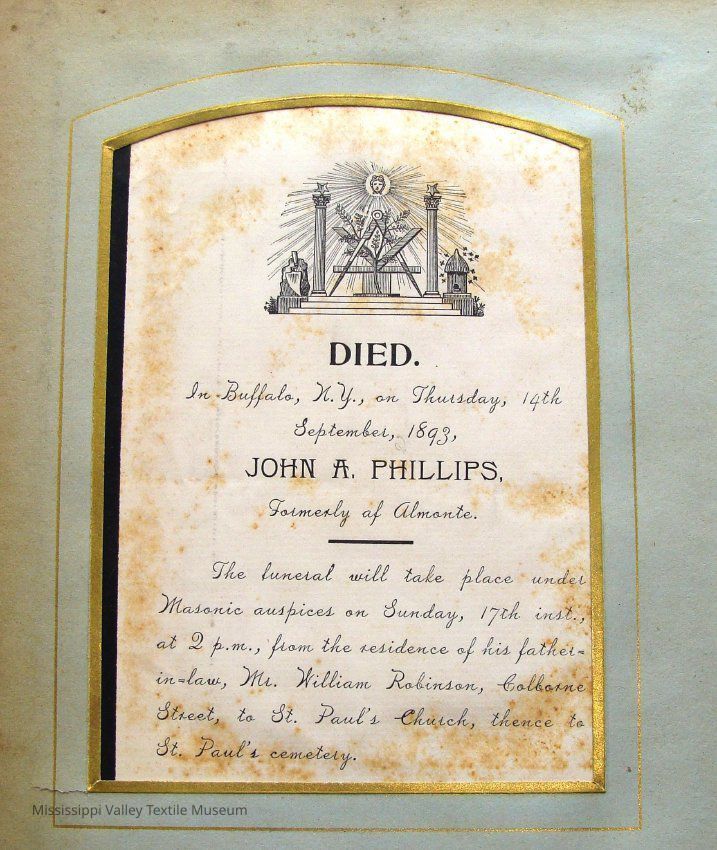 DIED.
In Buffalo, N.Y., on Thursday, 14th
September, 1893,
JOHN A. PHILLIPS,
Formerly of Almonte.
The funeral will take place under
Masonic auspices on Sunday, 17th inst.,
at 2 p.m., from the residence of his father=
in=law, Mr. William Robinson, Colborne
Street, to St. Paul's Church, thence to
St. Paul's cemetery.
Mississippi Valley Textile Museum